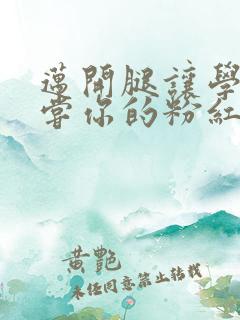 邁開腿讓學
當你的粉紅
黃艷
未經同意禁止轉載